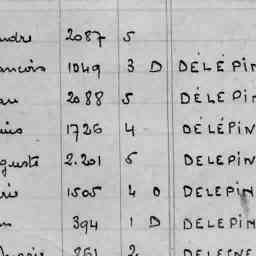 ndre 2087 5
ancois 1049 3 D DÉLÉPIN
au 2088 5 DÉLEPIN
1726 4 DÉLÉPIN
guste 2.201 5 DELEPIN
1505 4 D DELEPIN
394 1 D DELEPIN
261 2 DELESNE